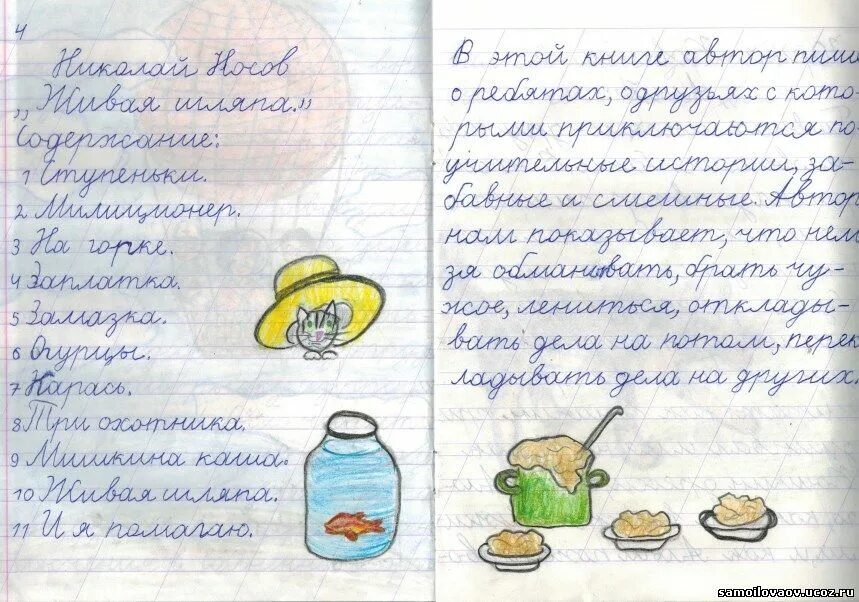 4
Николай Носов
„Живая шляпа."
Содержание:
1 Ступеньки.
2 Милиционер.
3 На горке.
4 Заплатка.
5 Замазка.
6 Огурцы.
7 Карась.
8 Три охотника.
9 Мишкина каша.
10 Живая шляпа.
11 И я помогаю.
В этой книге автор пише
о ребятах, о друзьях с кото-
рыми приключаются по
учительные истории, за-
бавные и смешные. Автор
нам показывает, что нель
зя обманывать, брать чу-
жое, лениться, откладыв-
вать дела на потом, перек
ладывать дела на других.
samoilovaov.ucoz.ru